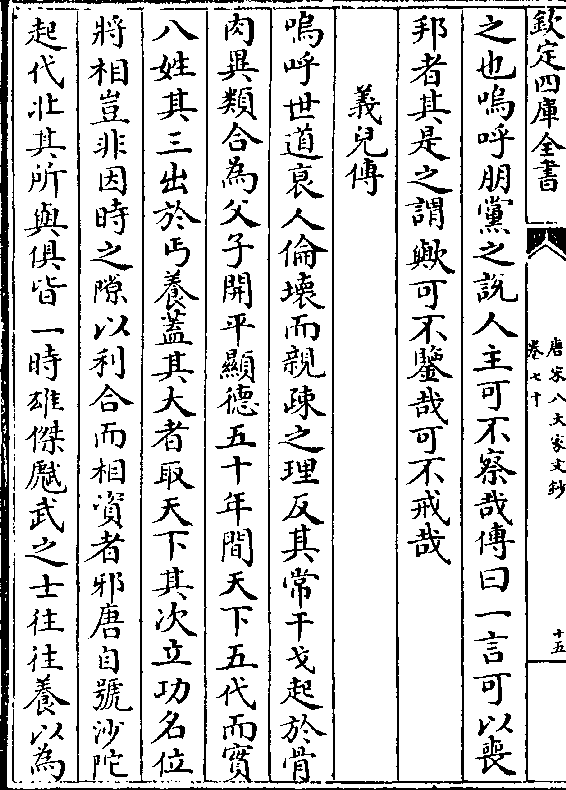 欽定四庫全書
唐宋八大家文鈔
卷七十
十五
之也嗚呼朋黨之說人主可不察哉傳曰一言可以喪
邦者其是之謂歟可不鑒哉可不戒哉
義兒傳
嗚呼世道衰人倫壞而親疎之理反其常干戈起於骨
肉異類合為父子開平顯德五十年間天下五代而實
八姓其三出於丐養蓋其大者取天下其次立功名位
將相豈非因時之隙以利合而相資者邪唐自號沙陀
起代北其所與俱皆一時雄傑虣武之士往往養以為